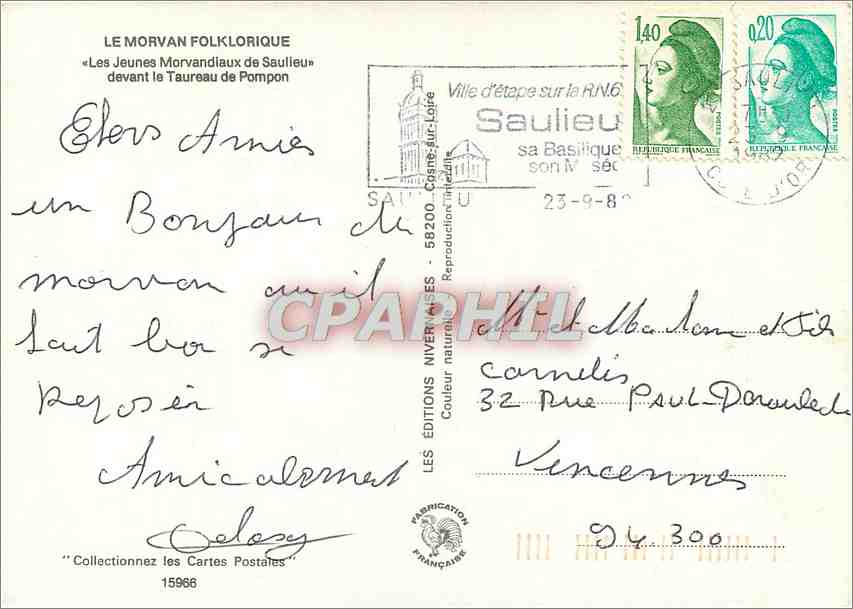 LE MORVAN FOLKLORIQUE
«Les Jeunes Morvandiaux de Saulieu»
devant le Taureau de Pompon
Amies
un Bonjour du
morvan ou il
fait bon se
reposer
Amicalement
"Collectionnez les Cartes Postales"
15966
LES ÉDITIONS NIVERNAISES - 58200 Cosne-sur-Loire
Couleur naturelle - Reproduction interdite
FABRICATION
FRANÇAISE
CPARPHIL
Ville d'étape sur la R.N.6
Saulieu
sa Basilique
son M sé
SAULIEU
23-9-8
1,40
POSTES
REPUBLIQUE FRANÇAISE
0,20
POSTES
REPUBLIQUE FRANÇAISE
SAULIEU
COTE D'OR
Mr et Madame et Fils
Cornelis
32 Rue PAUL-Deroulede
Vincennes
94.300